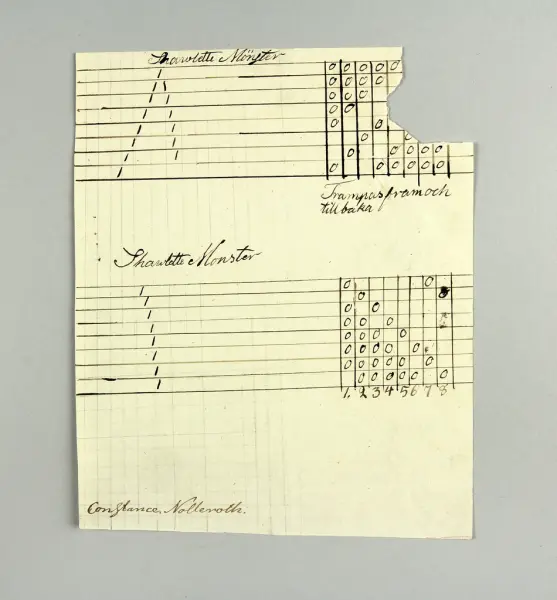 Shawlette Mönster
Trampas fram och
till baka
Shawlette Monster
1. 2 3 4 5 6 7 8
Constance Nolleroth.